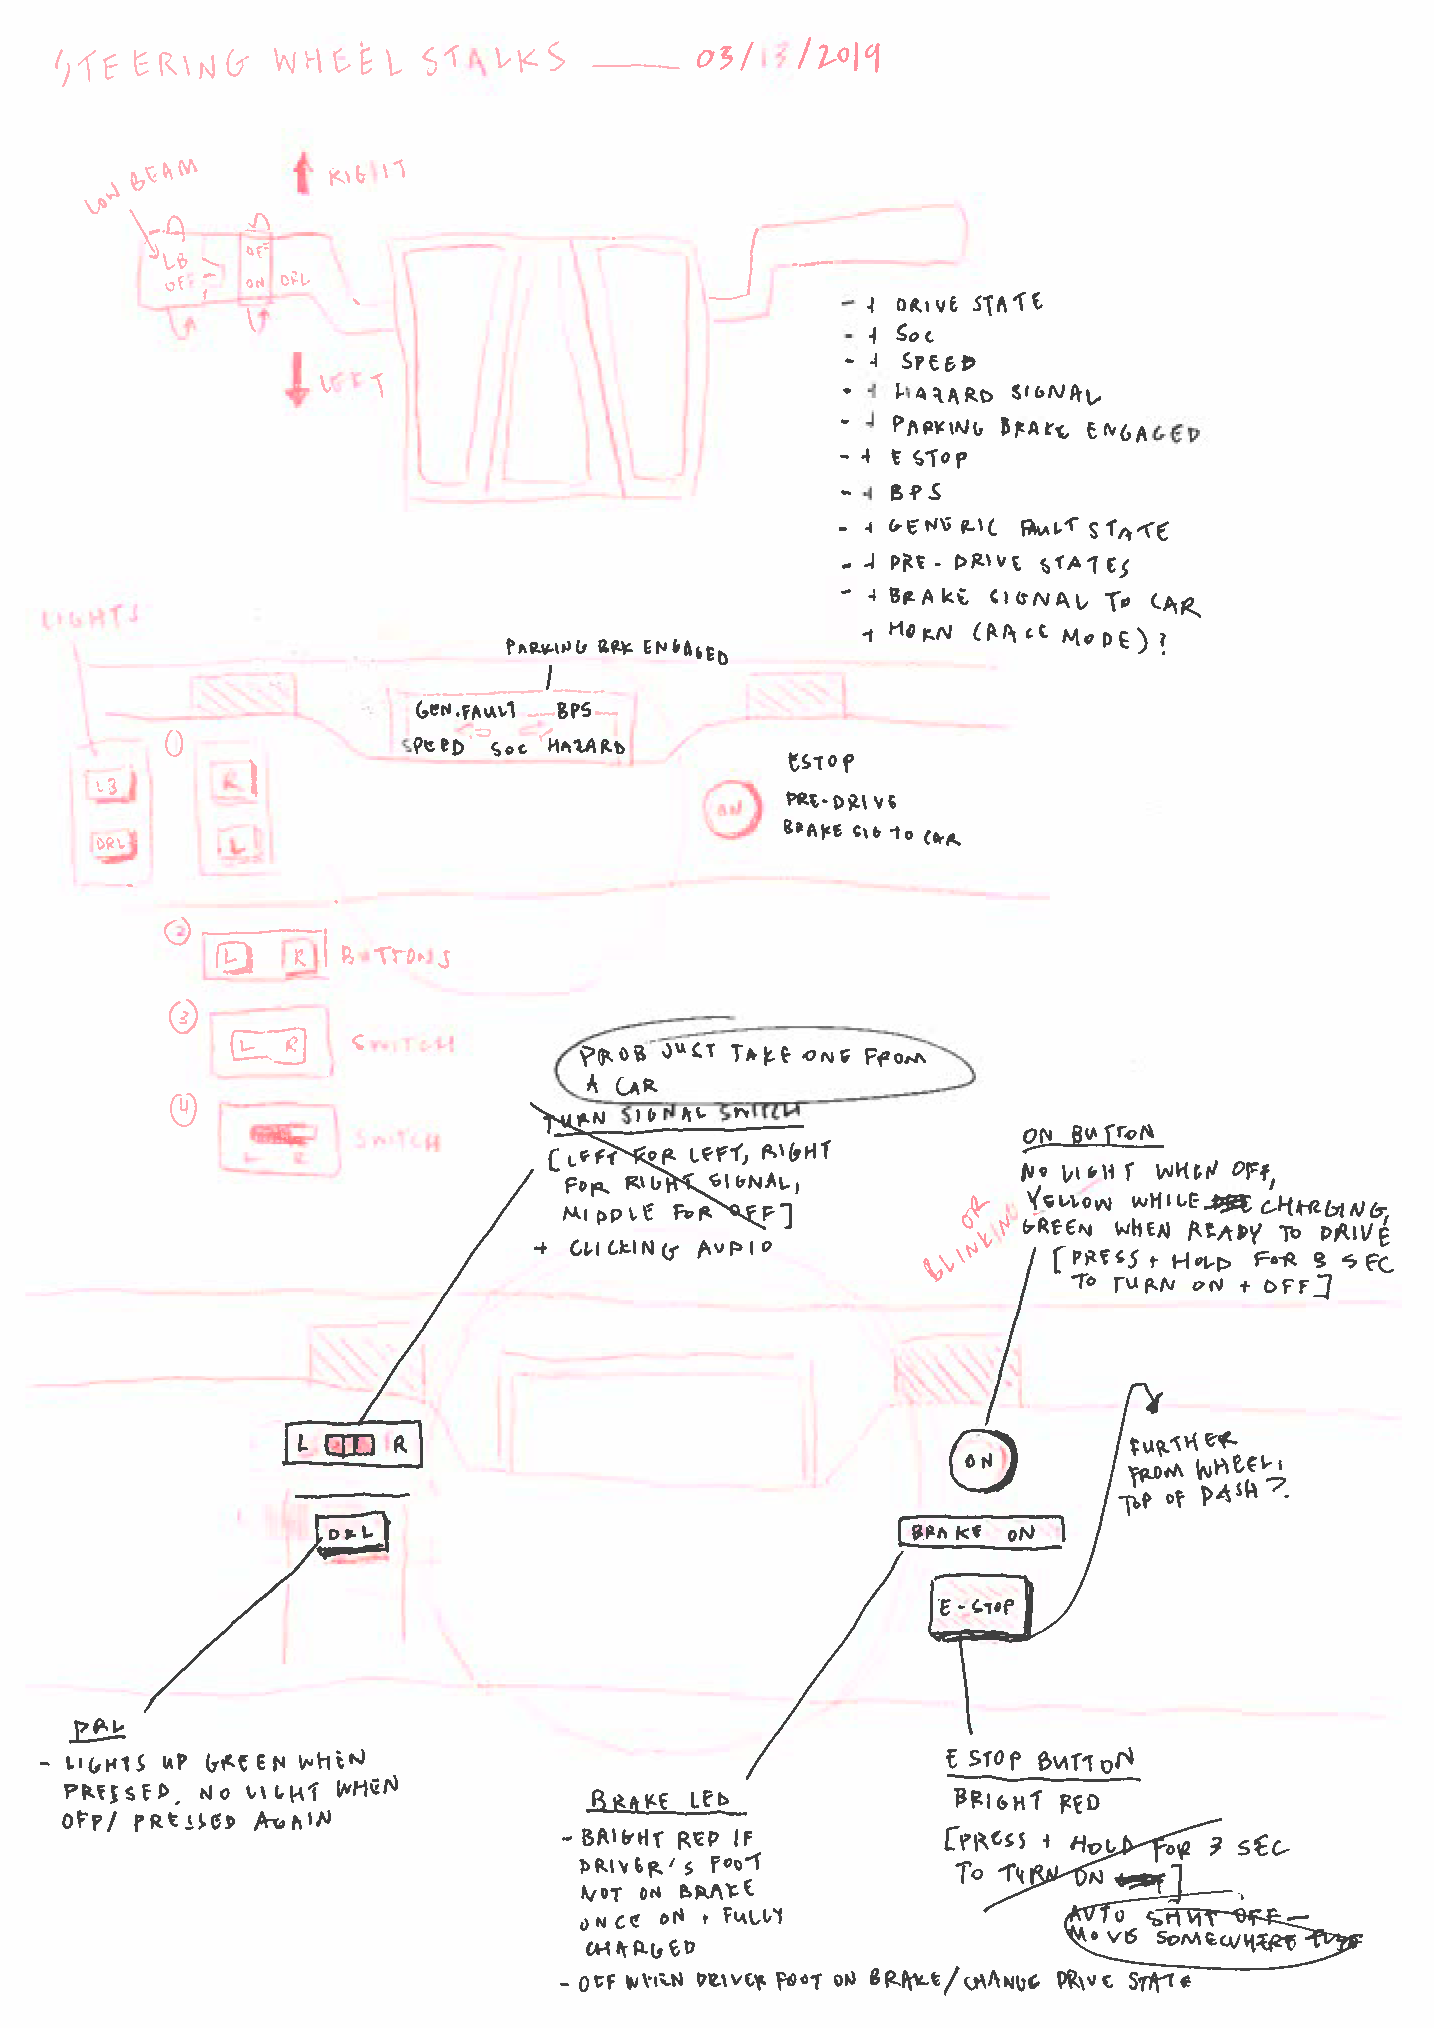 STEERING WHEEL STALKS — 03/13/2019
LOW BEAM
RIGHT
LB
OFF
OFF
ON
DRL
LEFT
- + DRIVE STATE
- + SOC
- + SPEED
- + HAZARD SIGNAL
- + PARKING BRAKE ENGAGED
- + E STOP
- + BPS
- + GENERIC FAULT STATE
- + PRE-DRIVE STATES
- + BRAKE SIGNAL TO CAR
+ HORN (RACE MODE)?
LIGHTS
PARKING BRK ENGAGED
GEN. FAULT BPS
SPEED SOC HAZARD
1
LB
DRL
R
L
ON
ESTOP
PRE-DRIVE
BRAKE SIG TO CAR
2
L R BUTTONS
3
L R SWITCH
4
L R SWITCH
PROB JUST TAKE ONE FROM
A CAR
TURN SIGNAL SWITCH
[LEFT FOR LEFT, RIGHT
FOR RIGHT SIGNAL,
MIDDLE FOR OFF]
+ CLICKING AUDIO
ON BUTTON
NO LIGHT WHEN OFF,
YELLOW WHILE CHARGING,
GREEN WHEN READY TO DRIVE
[PRESS + HOLD FOR 3 SEC
TO TURN ON + OFF]
OR
BLINKING
L R
DRL
ON
BRAKE ON
E-STOP
FURTHER
FROM WHEEL,
TOP OF DASH?
DRL
- LIGHTS UP GREEN WHEN
PRESSED. NO LIGHT WHEN
OFF/ PRESSED AGAIN
BRAKE LED
- BRIGHT RED IF
DRIVER'S FOOT
NOT ON BRAKE
ONCE ON + FULLY
CHARGED
- OFF WHEN DRIVER FOOT ON BRAKE/CHANGE DRIVE STATE
E STOP BUTTON
BRIGHT RED
[PRESS + HOLD FOR 3 SEC
TO TURN ON ]
AUTO SHUT OFF —
MOVE SOMEWHERE